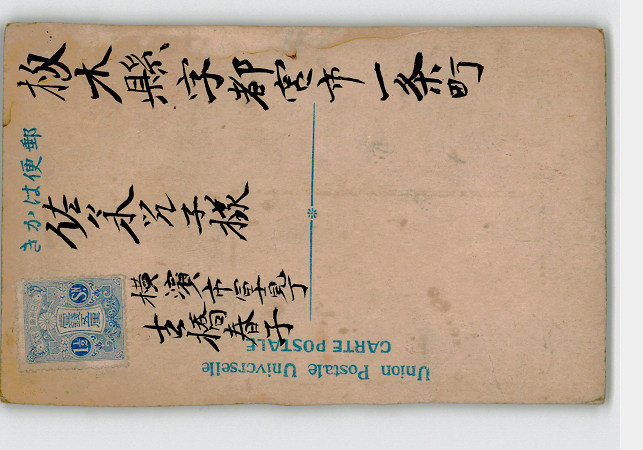 栃木縣宇都宮市一条町
郵便はかき
佐々木
子様
横濱市
吉橋春子
壹錢五厘
1½
Sn
CARTE POSTALE
Union Postale Universelle